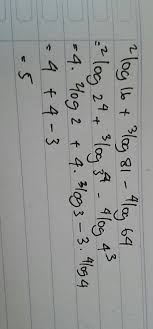 ²log 16 + ³log 81 - ⁴log 64
= ²log 2⁴ + ³log 3⁴ - ⁴log 4³
= 4. ²log 2 + 4. ³log 3 - 3. ⁴log 4
= 4 + 4 - 3
= 5